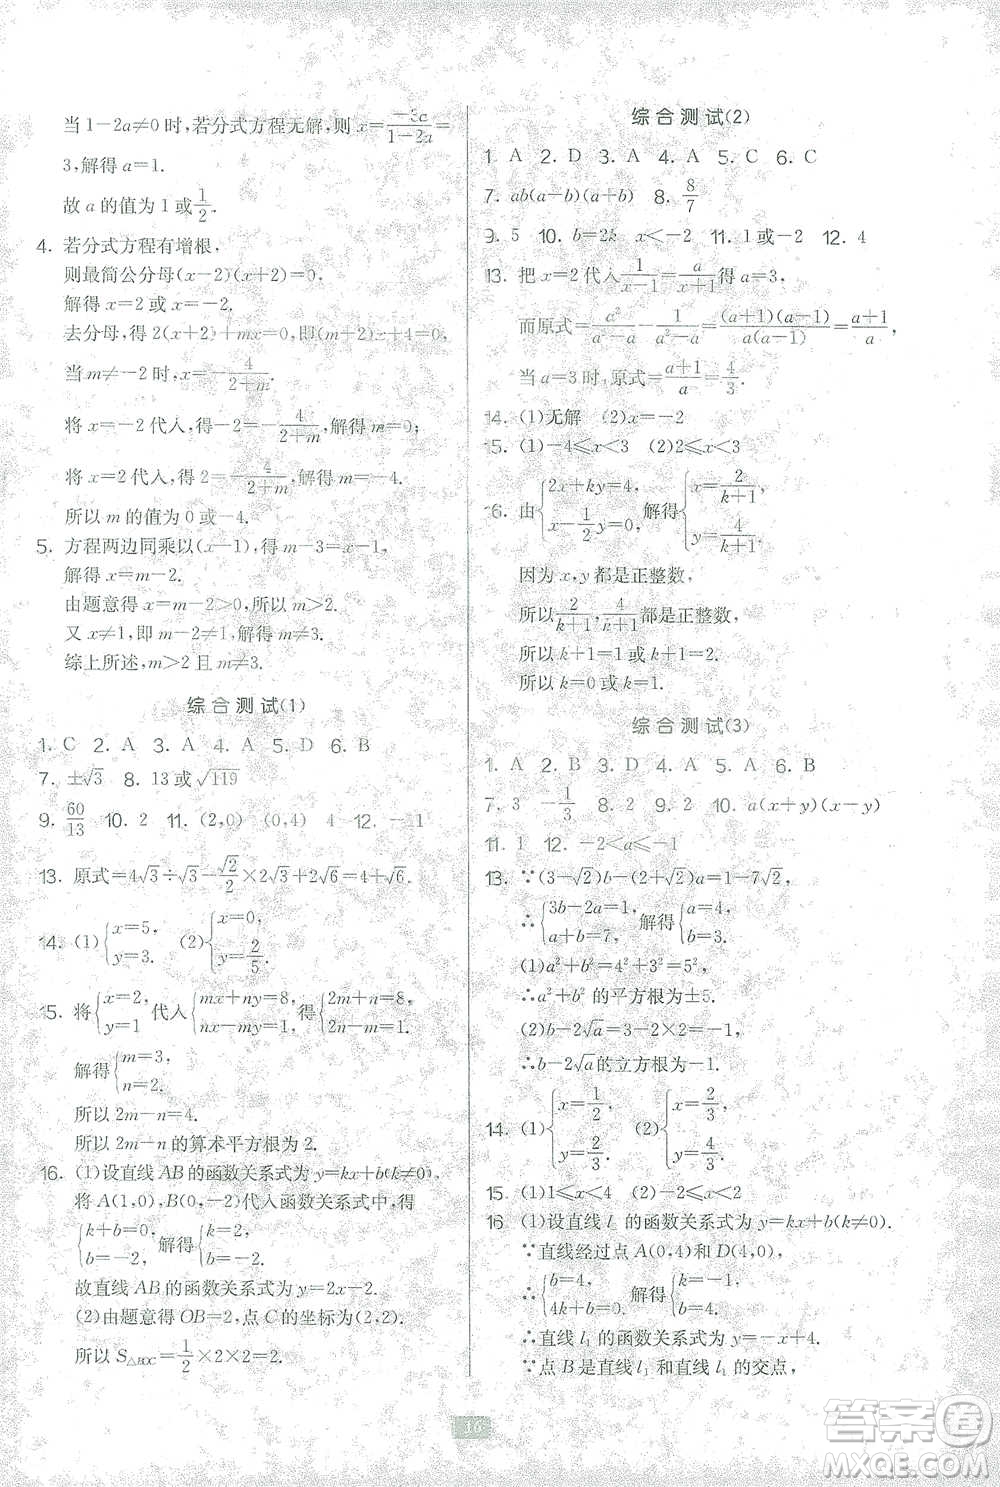 当1－2a≠0时,若分式方程无解,则x=\frac{-3a}{1-2a}=
3,解得a=1.
故a的值为1或\frac{1}{2}.
4. 若分式方程有增根,
则最简公分母(x－2)(x＋2)=0,
解得x=2或x=－2.
去分母,得2(x＋2)＋mx=0,则(m＋2)x＋4=0,
当m≠－2时,x=－\frac{4}{2+m}.
将x=－2代入,得－2=－\frac{4}{2+m},解得m=0;
将x=2代入,得2=－\frac{4}{2+m},解得m=－4.
所以m的值为0或－4.
5. 方程两边同乘以(x－1),得m－3=x－1,
解得x=m－2.
由题意得x=m－2>0,所以m>2.
又x≠1,即m－2≠1,解得m≠3.
综上所述,m>2且m≠3.
综合测试(1)
1. C 2. A 3. A 4. A 5. D 6. B
7. ±√3 8. 13或√119
9. \frac{60}{13} 10. 2 11. (2,0) (0,4) 4 12. －1
13. 原式=4√3÷√3－\frac{√2}{2}×2√3＋2√6=4＋√6.
14. (1){x=5, y=3. (2){x=0, y=\frac{2}{5}.
15. 将{x=2 y=1代入{mx＋ny=8, nx－my=1,得{2m＋n=8, 2n－m=1.
解得{m=3, n=2.
所以2m－n=4.
所以2m－n的算术平方根为2.
16. (1)设直线AB的函数关系式为y=kx＋b(k≠0),
将A(1,0),B(0,－2)代入函数关系式中,得
{k＋b=0, b=－2,解得{k=2, b=－2.
故直线AB的函数关系式为y=2x－2.
(2)由题意得OB=2,点C的坐标为(2,2).
所以S△BOC=\frac{1}{2}×2×2=2.
综合测试(2)
1. A 2. D 3. A 4. A 5. C 6. C
7. ab(a－b)(a＋b) 8. \frac{8}{7}
9. 5 10. b=2k x<－2 11. 1或－2 12. 4
13. 把x=2代入\frac{1}{x-1}=\frac{a}{x+1}得a=3,
而原式=\frac{a²}{a²-a}－\frac{1}{a²-a}=\frac{(a+1)(a-1)}{a(a-1)}=\frac{a+1}{a},
当a=3时,原式=\frac{a+1}{a}=\frac{4}{3}.
14. (1)无解 (2)x=－2
15. (1)－4≤x<3 (2)2≤x<3
16. 由{2x＋ky=4, x－\frac{1}{2}y=0,解得{x=\frac{2}{k+1}, y=\frac{4}{k+1}.
因为x,y都是正整数,
所以\frac{2}{k+1},\frac{4}{k+1}都是正整数,
所以k＋1=1或k＋1=2.
所以k=0或k=1.
综合测试(3)
1. A 2. B 3. D 4. A 5. A 6. B
7. 3 －\frac{1}{3} 8. 2 9. 2 10. a(x＋y)(x－y)
11. 1 12. －2<a≤－1
13. ∵(3－√2)b－(2＋√2)a=1－7√2,
∴{3b－2a=1, a＋b=7,解得{a=4, b=3.
(1)a²＋b²=4²＋3²=5².
∴a²＋b²的平方根为±5.
(2)b－2√a=3－2×2=－1.
∴b－2√a的立方根为－1.
14. (1){x=\frac{1}{2}, y=3. (2){x=\frac{2}{3}, y=\frac{2}{3}.
15. (1)1≤x<4 (2)－2≤x<2
16. (1)设直线l₁的函数关系式为y=kx＋b(k≠0).
∵直线经过点A(0,4)和D(4,0),
∴{b=4, 4k＋b=0.解得{k=－1, b=4.
∴直线l₁的函数关系式为y=－x＋4.
∵点B是直线l₁和直线l₁的交点,
16
答案圈
MXQE.COM